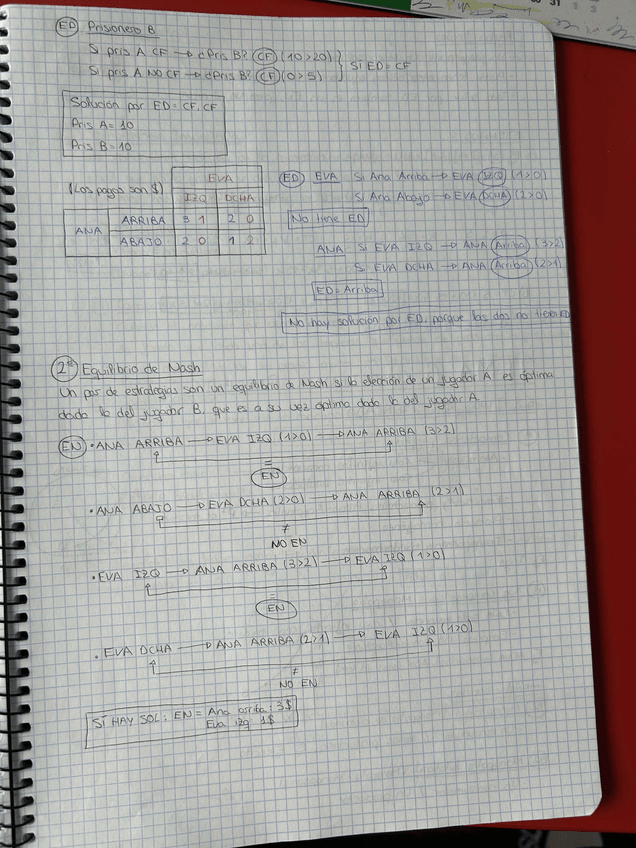 ED Prisionero B
Si pris A CF → ¿Pris B? CF (10>20)
Si pris A NO CF → ¿Pris B? CF (0>5)
Sí ED = CF
Solución por ED = CF, CF
Pris A = 10
Pris B = 10
(Los pagos son $)
EVA
IZQ DCHA
ANA
ARRIBA 3 1 2 0
ABAJO 2 0 1 2
ED EVA Si Ana Arriba → EVA IZQ (1>0)
Si Ana Abajo → EVA DCHA (2>0)
No tiene ED
ANA Si EVA IZQ → ANA Arriba (3>2)
Si EVA DCHA → ANA Arriba (2>1)
ED = Arriba
No hay solución por ED, porque las dos no tienen ED
2º Equilibrio de Nash
Un par de estrategias son un equilibrio de Nash si la elección de un jugador A es óptima
dada la del jugador B, que es a su vez óptima dada la del jugador A.
EN • ANA ARRIBA → EVA IZQ (1>0) → ANA ARRIBA (3>2)
=
EN
• ANA ABAJO → EVA DCHA (2>0) → ANA ARRIBA (2>1)
≠
NO EN
• EVA IZQ → ANA ARRIBA (3>2) → EVA IZQ (1>0)
=
EN
• EVA DCHA → ANA ARRIBA (2>1) → EVA IZQ (1>0)
≠
NO EN
SÍ HAY SOL: EN = Ana arriba: 3$
Eva izq 1$